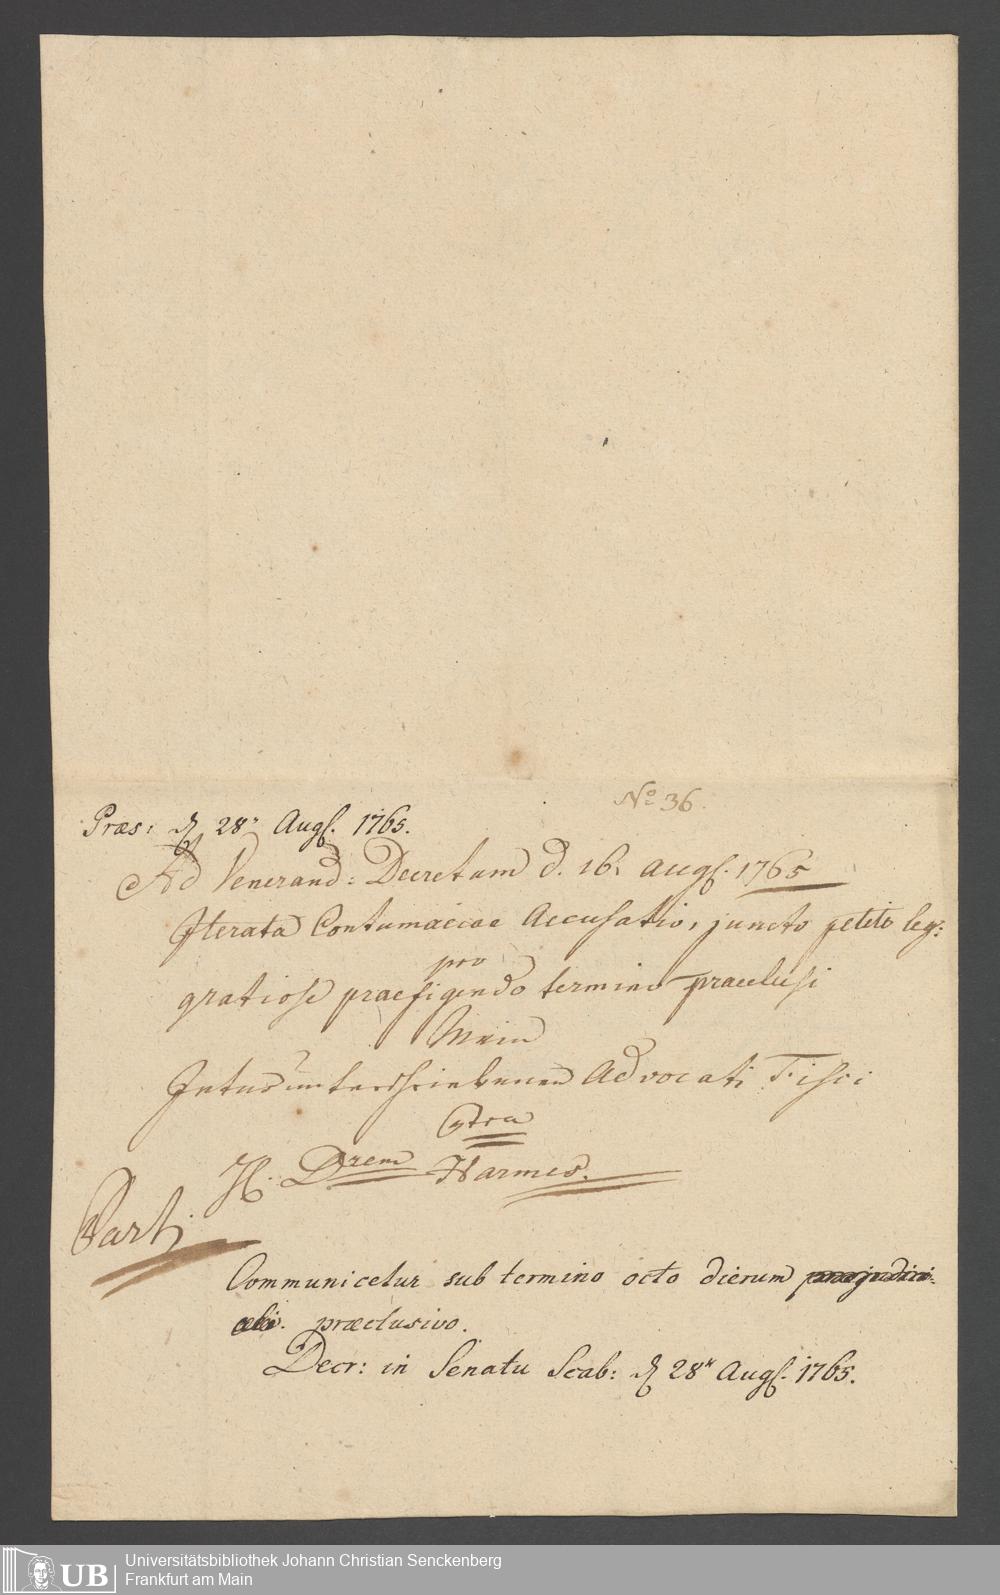 No 36.
Præs: d 28t Augs. 1765.
Ad Venerand: Decretum d. 16. Augs. 1765
Iterata Contumaciae Accusatio, juncto petito leg:
gratiose praefigendo termino praeclusi
pro
Mein
Intus unterschriebenen Advocati Fisci
Contra
H. Drem Harmes.
Parti
Communicetur sub termino octo dierum præjudici-
ali. præclusivo.
Decr: in Senatu Scab: d 28t Augs. 1765.
UB
Universitätsbibliothek Johann Christian Senckenberg
Frankfurt am Main